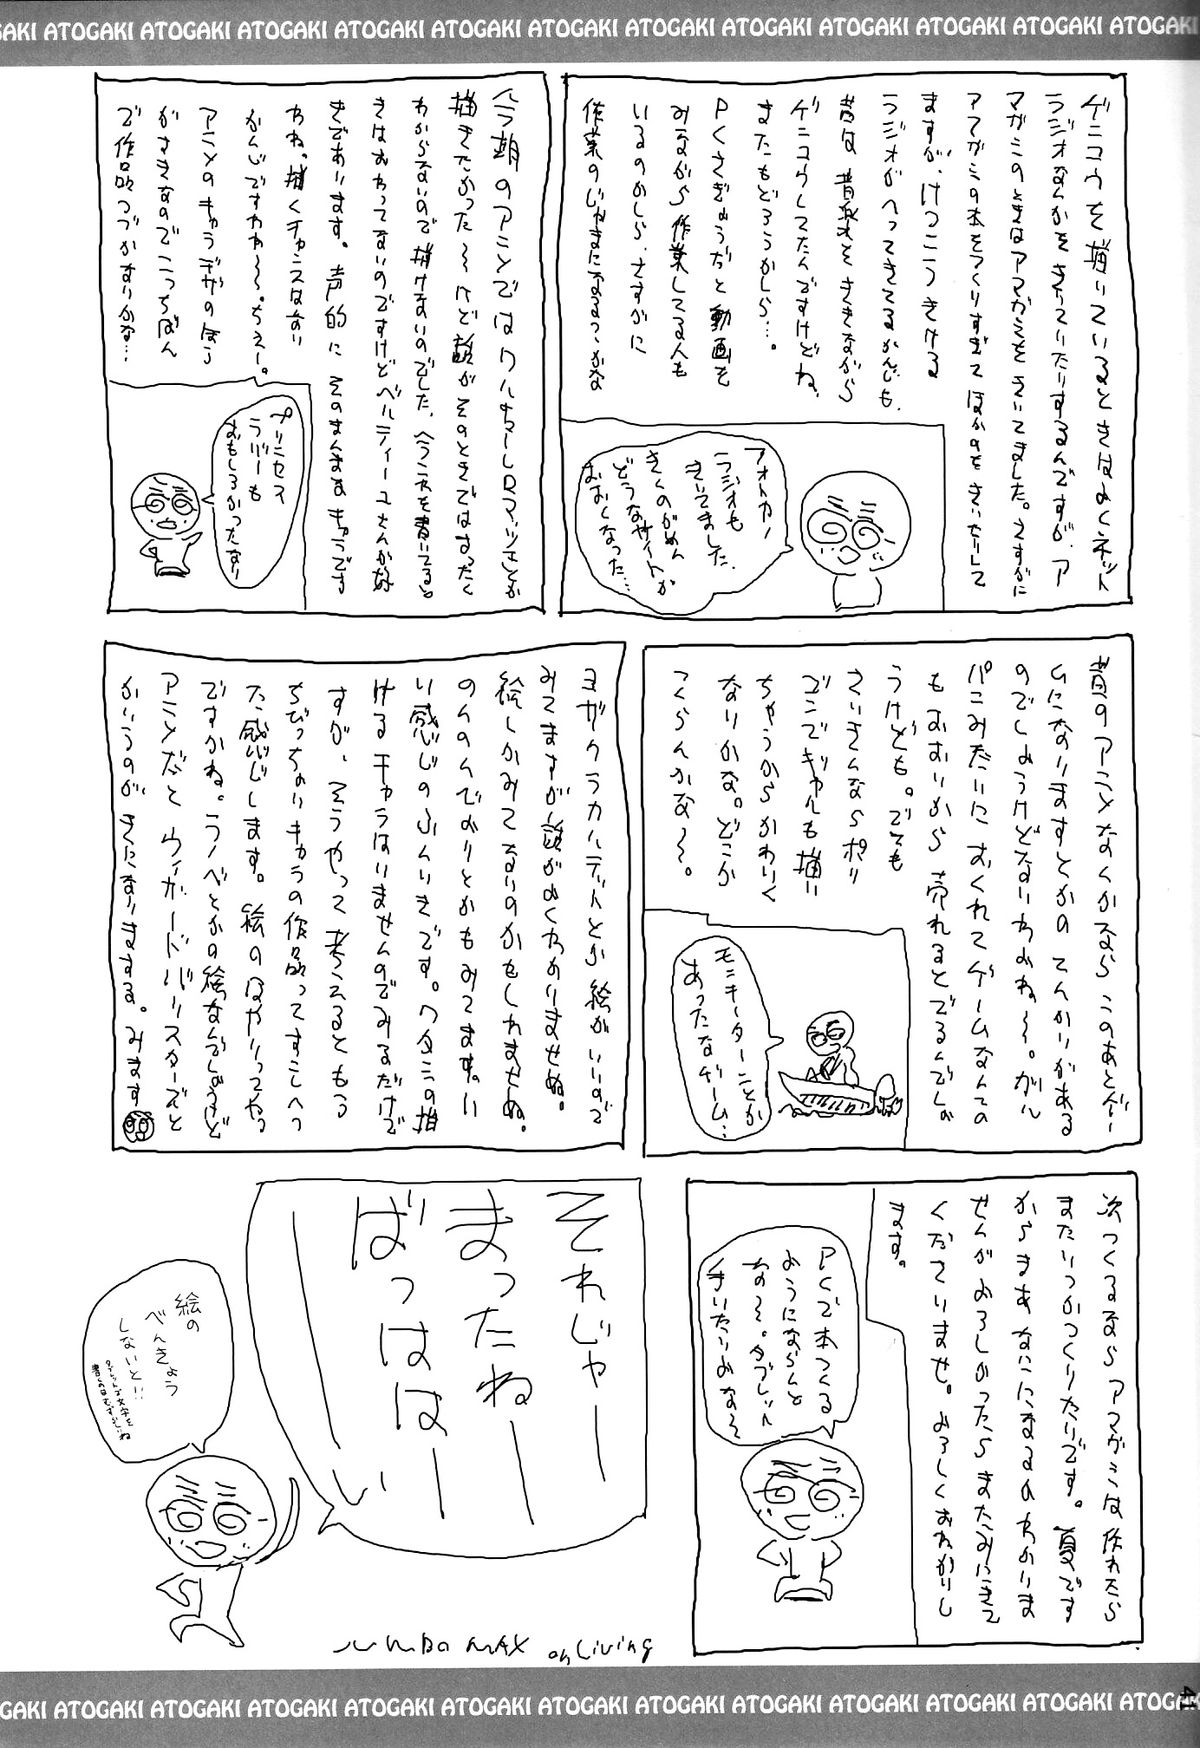 ATOGAKI ATOGAKI ATOGAKI ATOGAKI ATOGAKI ATOGAKI ATOGAKI ATOGAKI ATOGAKI ATOGAKI ATOGAKI
ゲンコウを描いているときはよくネット
ラジオなんかをきいていたりするんですが、ア
マガミのときはアマガミをきいてました。さすがに
アマガミの本をつくりすぎて ほかのをきいたりして
ますが、けっこうきける
ラジオがへってきてるかんじも、
昔は 音楽をききながら
ゲンコウしてたんですけどね、
またもどろうかしら…。
PCさぎょうだと 動画を
みながら作業してる人も
いるのかしら、さすがに
作業のじゃまになるっかな
フォトカノ
ラジオも
きいてました、
きくのがめん
どうなサイトが
おおくなった…
今期のアニメではワルキューレロマンツェとか
描きたかった〜けど話がそのときではまったく
わからないので描けないのでした、今コレを書いてると
きはおわってないのですけどベルティーユさんが好
きであります。声的に そのまんまなキャラです
わね。描くチャンスはない
かんじですわね〜。ちぇー。
アニメのキャラデザのほう
がすきなのでこっちばん
で作品つづかないかな…
プリンセス
ラバーも
おもしろかったなり
昔のアニメなんかなら このあとゲー
ムになりますとかの てんかいがある
のでしょうけどないわよね〜。ガル
パンみたいに おくれてゲームなんての
もおおいから 売れるとでるんでしょ
うけども。でも
さいきんならポリ
ゴンでギャルも描い
ちゃうからかわいく
ないかな。どこか
つくらんかな〜。
モンキーターンとか
あったなゲーム…
ヨザクラカルテットとか 絵がいいので
みてますが話がよくわかりませぬ。
絵しかみてないのかもしれませぬ。
のんのんびよりとかもみてます。い
い感じのふんいきです。ワタシの描
ける キャラはいませんのでみるだけで
すが、そうやって考えるともう
ちびっちゃいキャラの作品ってすこしへっ
た感じします。絵のはやりってやつ
ですかね。ラノベとかの絵なんでしょうけど
アニメだと ウィザードバリスターズんと
かいうのが きになりまする。みます
次つくるなら アマガミは作れたら
またいつかつくりたいです。夏です
からまあ なにになるのかわかりま
せんがよろしかったら またみにきて
くださいませ。よろしくおねがいし
ます。
PCで本つくる
ようにならんと
な〜。タブレット
それじゃー
まったねー
ばっはは〜い
絵の
べんきょう
しないと!!
JUMBO MAX on Living
ATOGAKI ATOGAKI ATOGAKI ATOGAKI ATOGAKI ATOGAKI ATOGAKI ATOGAKI ATOGAKI ATOGAKI ATOGAKI